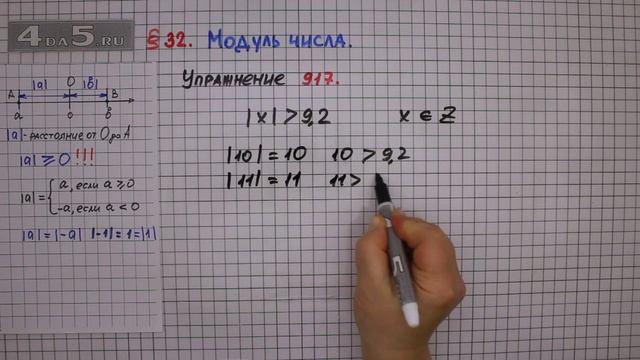 4DA5.RU
§ 32. Модуль числа.
Упражнение 917.
|x| > 9,2 x ∈ Z
|10| = 10 10 > 9,2
|11| = 11 11 >
|a| 0 |b|
A B
a 0 b
|a| - расстояние от 0 до A
|a| ≥ 0 !!!
|a| = { a, если a ≥ 0
-a, если a < 0
|a| = |-a| |-1| = 1 = |1|